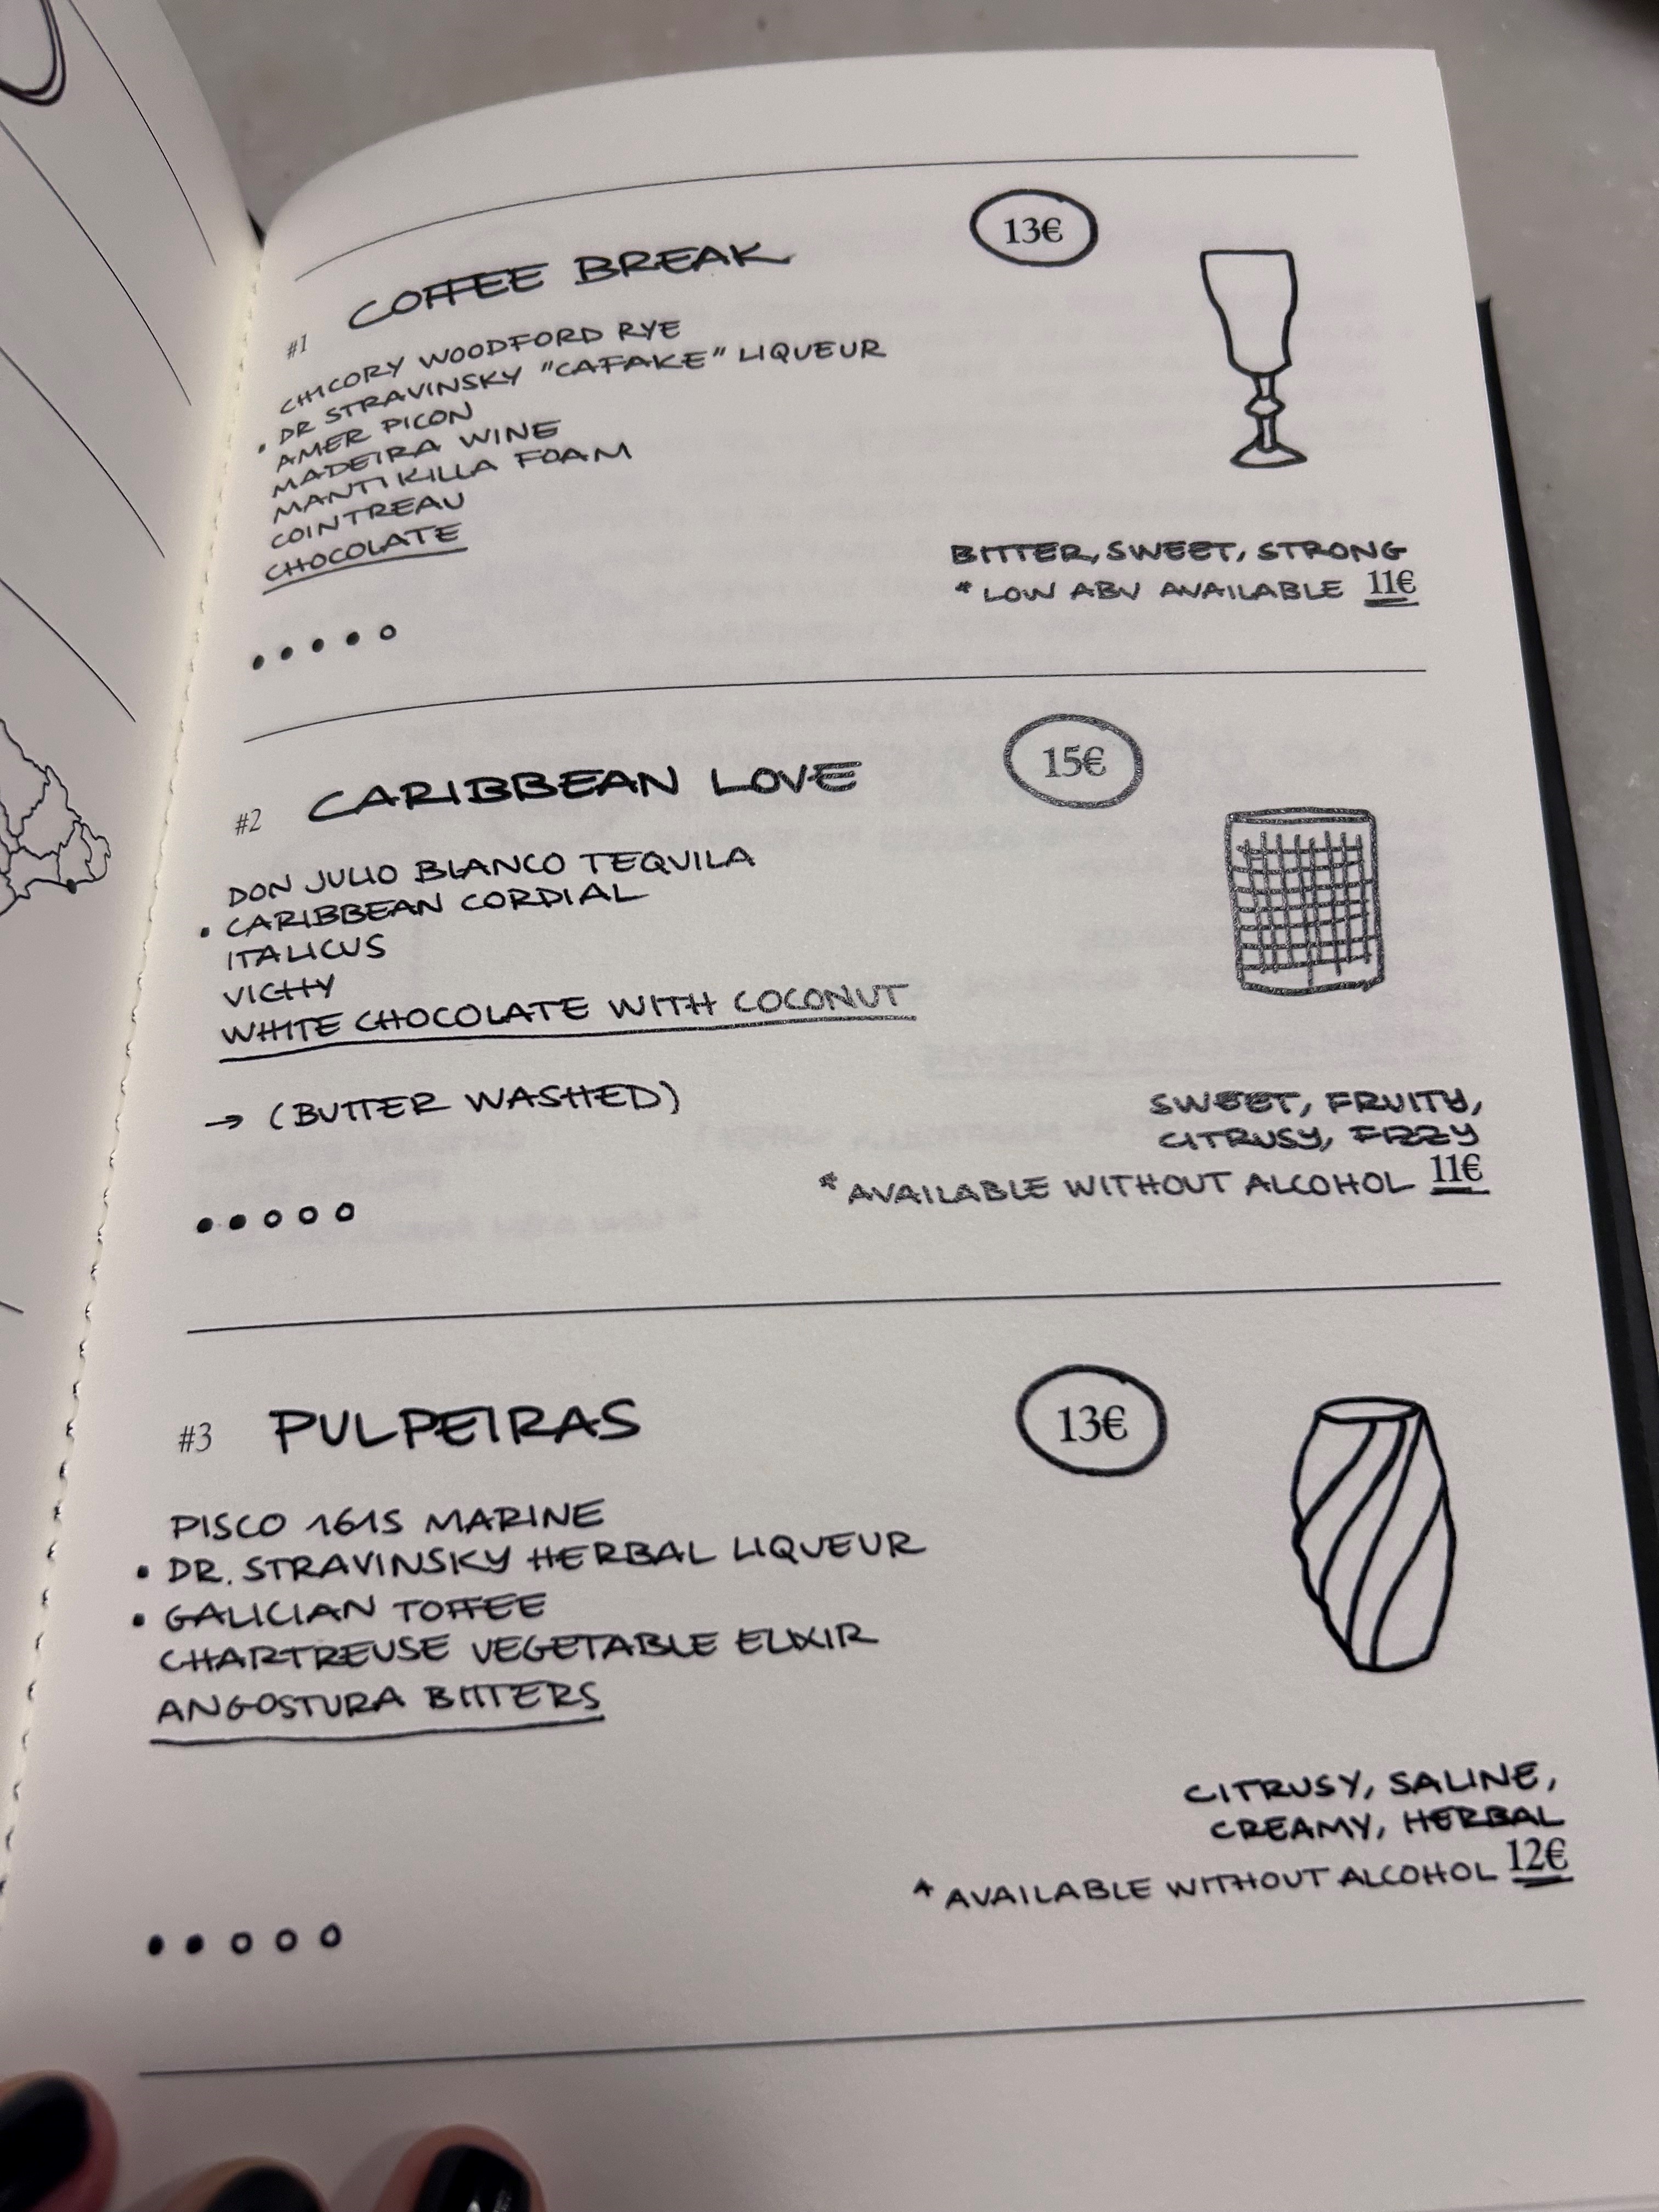 13€
#1 COFFEE BREAK
CHICORY WOODFORD RYE
• DR STRAVINSKY "CAFAKE" LIQUEUR
AMER PICON
MADEIRA WINE
MANTIKILLA FOAM
COINTREAU
CHOCOLATE
BITTER, SWEET, STRONG
* LOW ABV AVAILABLE 11€
15€
#2 CARIBBEAN LOVE
DON JULIO BLANCO TEQUILA
• CARIBBEAN CORDIAL
ITALICUS
VICHY
WHITE CHOCOLATE WITH COCONUT
→ (BUTTER WASHED)
SWEET, FRUITY,
CITRUSY, FIZZY
* AVAILABLE WITHOUT ALCOHOL 11€
#3 PULPEIRAS
13€
PISCO 1615 MARINE
• DR. STRAVINSKY HERBAL LIQUEUR
• GALICIAN TOFFEE
CHARTREUSE VEGETABLE ELIXIR
ANGOSTURA BITTERS
CITRUSY, SALINE,
CREAMY, HERBAL
* AVAILABLE WITHOUT ALCOHOL 12€